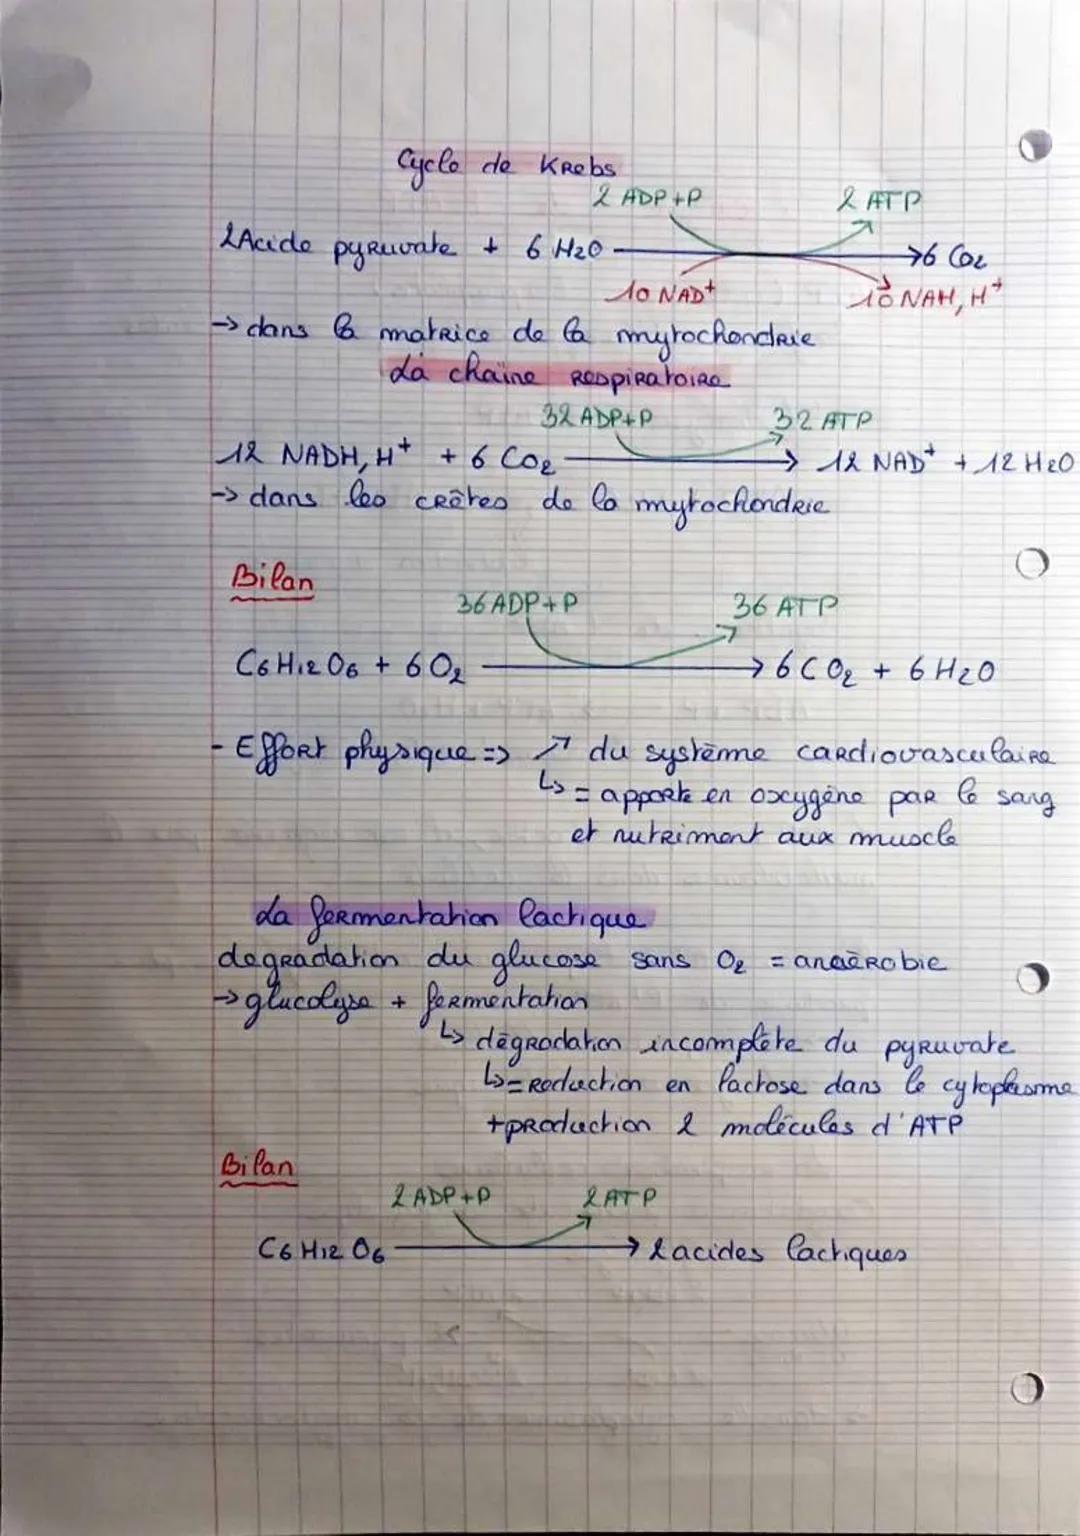 Cycle de Krebs
2 ADP+P 2 ATP
2 Acide pyruvate + 6 H2O → 6 CO2
10 NAD+ 10 NAH, H+
→ dans la matrice de la mytochondrie
La chaîne respiratoire
32 ADP+P 32 ATP
12 NADH, H+ + 6 CO2 → 12 NAD+ + 12 H2O
-> dans les crêtes de la mytochondrie
Bilan
36 ADP+P 36 ATP
C6 H12 O6 + 6 O2 → 6 CO2 + 6 H2O
- Effort physique => ↗ du système cardiovasculaire
↳ = apporte en oxygène par le sang
et nutriment aux muscle
La fermentation lactique
dégradation du glucose sans O2 = anaérobie
→ glucolyse + fermentation
↳ dégradation incomplète du pyruvate
↳ = Reduction en lactose dans le cytoplasme
+ production 2 molécules d'ATP
Bilan
2 ADP+P 2 ATP
C6 H12 O6 → 2 acides lactiques